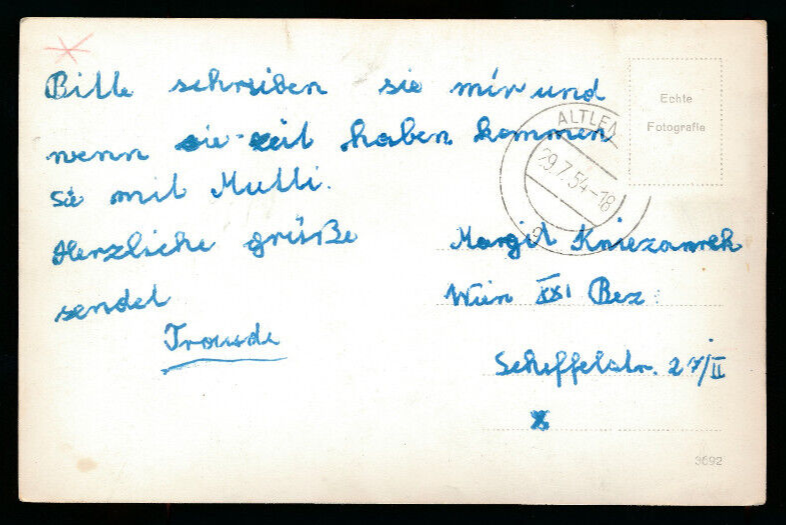 Bitte schreiben sie mir und
wenn sie zeit haben kommen
sie mit Mutti.
Herzliche grüße
sendet
Traude
Echte
Fotografie
ALTLEN
29.7.54-18
Margit
Wien XXI Bez.
Scheffelstr. 27/II
3692